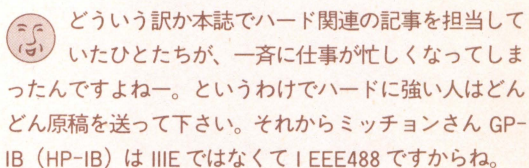 どういう訳か本誌でハード関連の記事を担当して
いたひとたちが、一斉に仕事が忙しくなってしま
ったんですよねー。というわけでハードに強い人はどん
どん原稿を送って下さい。それからミッチョンさん GP-
IB（HP-IB）は IIIE ではなくて I EEE488 ですからね。